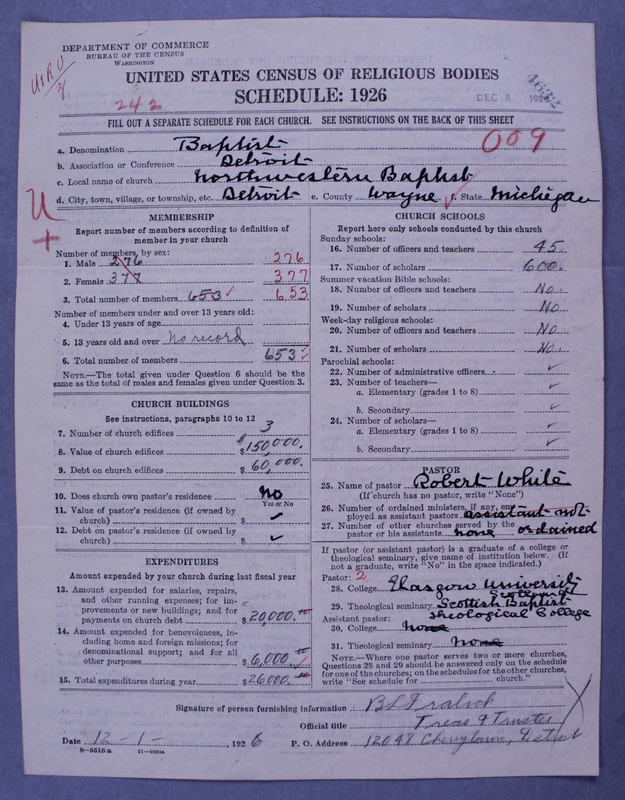 DEPARTMENT OF COMMERCE
BUREAU OF THE CENSUS
WASHINGTON
UNITED STATES CENSUS OF RELIGIOUS BODIES
SCHEDULE: 1926
242
DEC 8 192
FILL OUT A SEPARATE SCHEDULE FOR EACH CHURCH. SEE INSTRUCTIONS ON THE BACK OF THIS SHEET
009
a. Denomination Baptist
b. Association or Conference Detroit
c. Local name of church Northwestern Baptist
d. City, town, village, or township, etc. Detroit e. County Wayne f. State Michigan
U
+
MEMBERSHIP
Report number of members according to definition of
member in your church
Number of members, by sex:
1. Male 276 276
2. Female 377 377
3. Total number of members 653 653
Number of members under and over 13 years old:
4. Under 13 years of age
5. 13 years old and over No record
6. Total number of members 653
NOTE.—The total given under Question 6 should be the
same as the total of males and females given under Question 3.
CHURCH BUILDINGS
See instructions, paragraphs 10 to 12
7. Number of church edifices 3
8. Value of church edifices $150,000.
9. Debt on church edifices $60,000.
10. Does church own pastor's residence No
Yes or No
11. Value of pastor's residence (if owned by
church) $ ✓
12. Debt on pastor's residence (if owned by
church) $ ✓
EXPENDITURES
Amount expended by your church during last fiscal year
13. Amount expended for salaries, repairs,
and other running expenses; for im-
provements or new buildings; and for
payments on church debt $20,000.00
14. Amount expended for benevolences, in-
cluding home and foreign missions; for
denominational support; and for all
other purposes $6,000.00
15. Total expenditures during year $26000.00
CHURCH SCHOOLS
Report here only schools conducted by this church
Sunday schools:
16. Number of officers and teachers 45.
17. Number of scholars 600.
Summer vacation Bible schools:
18. Number of officers and teachers No.
19. Number of scholars No
Week-day religious schools:
20. Number of officers and teachers No
21. Number of scholars No.
Parochial schools:
22. Number of administrative officers ✓
23. Number of teachers—
a. Elementary (grades 1 to 8) ✓
b. Secondary ✓
24. Number of scholars—
a. Elementary (grades 1 to 8) ✓
b. Secondary ✓
PASTOR
25. Name of pastor Robert White
(If church has no pastor, write "None")
26. Number of ordained ministers, if any, em-
ployed as assistant pastors assistant not
27. Number of other churches served by the
pastor or his assistants none ordained
If pastor (or assistant pastor) is a graduate of a college or
theological seminary, give name of institution below. (If
not a graduate, write "No" in the space indicated.)
Pastor: 2
28. College Glasgow University
Scotland
29. Theological seminary Scottish Baptist
Theological College
Assistant pastor:
30. College None
31. Theological seminary None
NOTE.—Where one pastor serves two or more churches,
Questions 28 and 29 should be answered only on the schedule
for one of the churches; on the schedules for the other churches,
write "See schedule for church."
Signature of person furnishing information
Official title Treas & Trustee
Date 12-1- 1926 P. O. Address 12048 Cherrylawn, Detroit
8—5518a